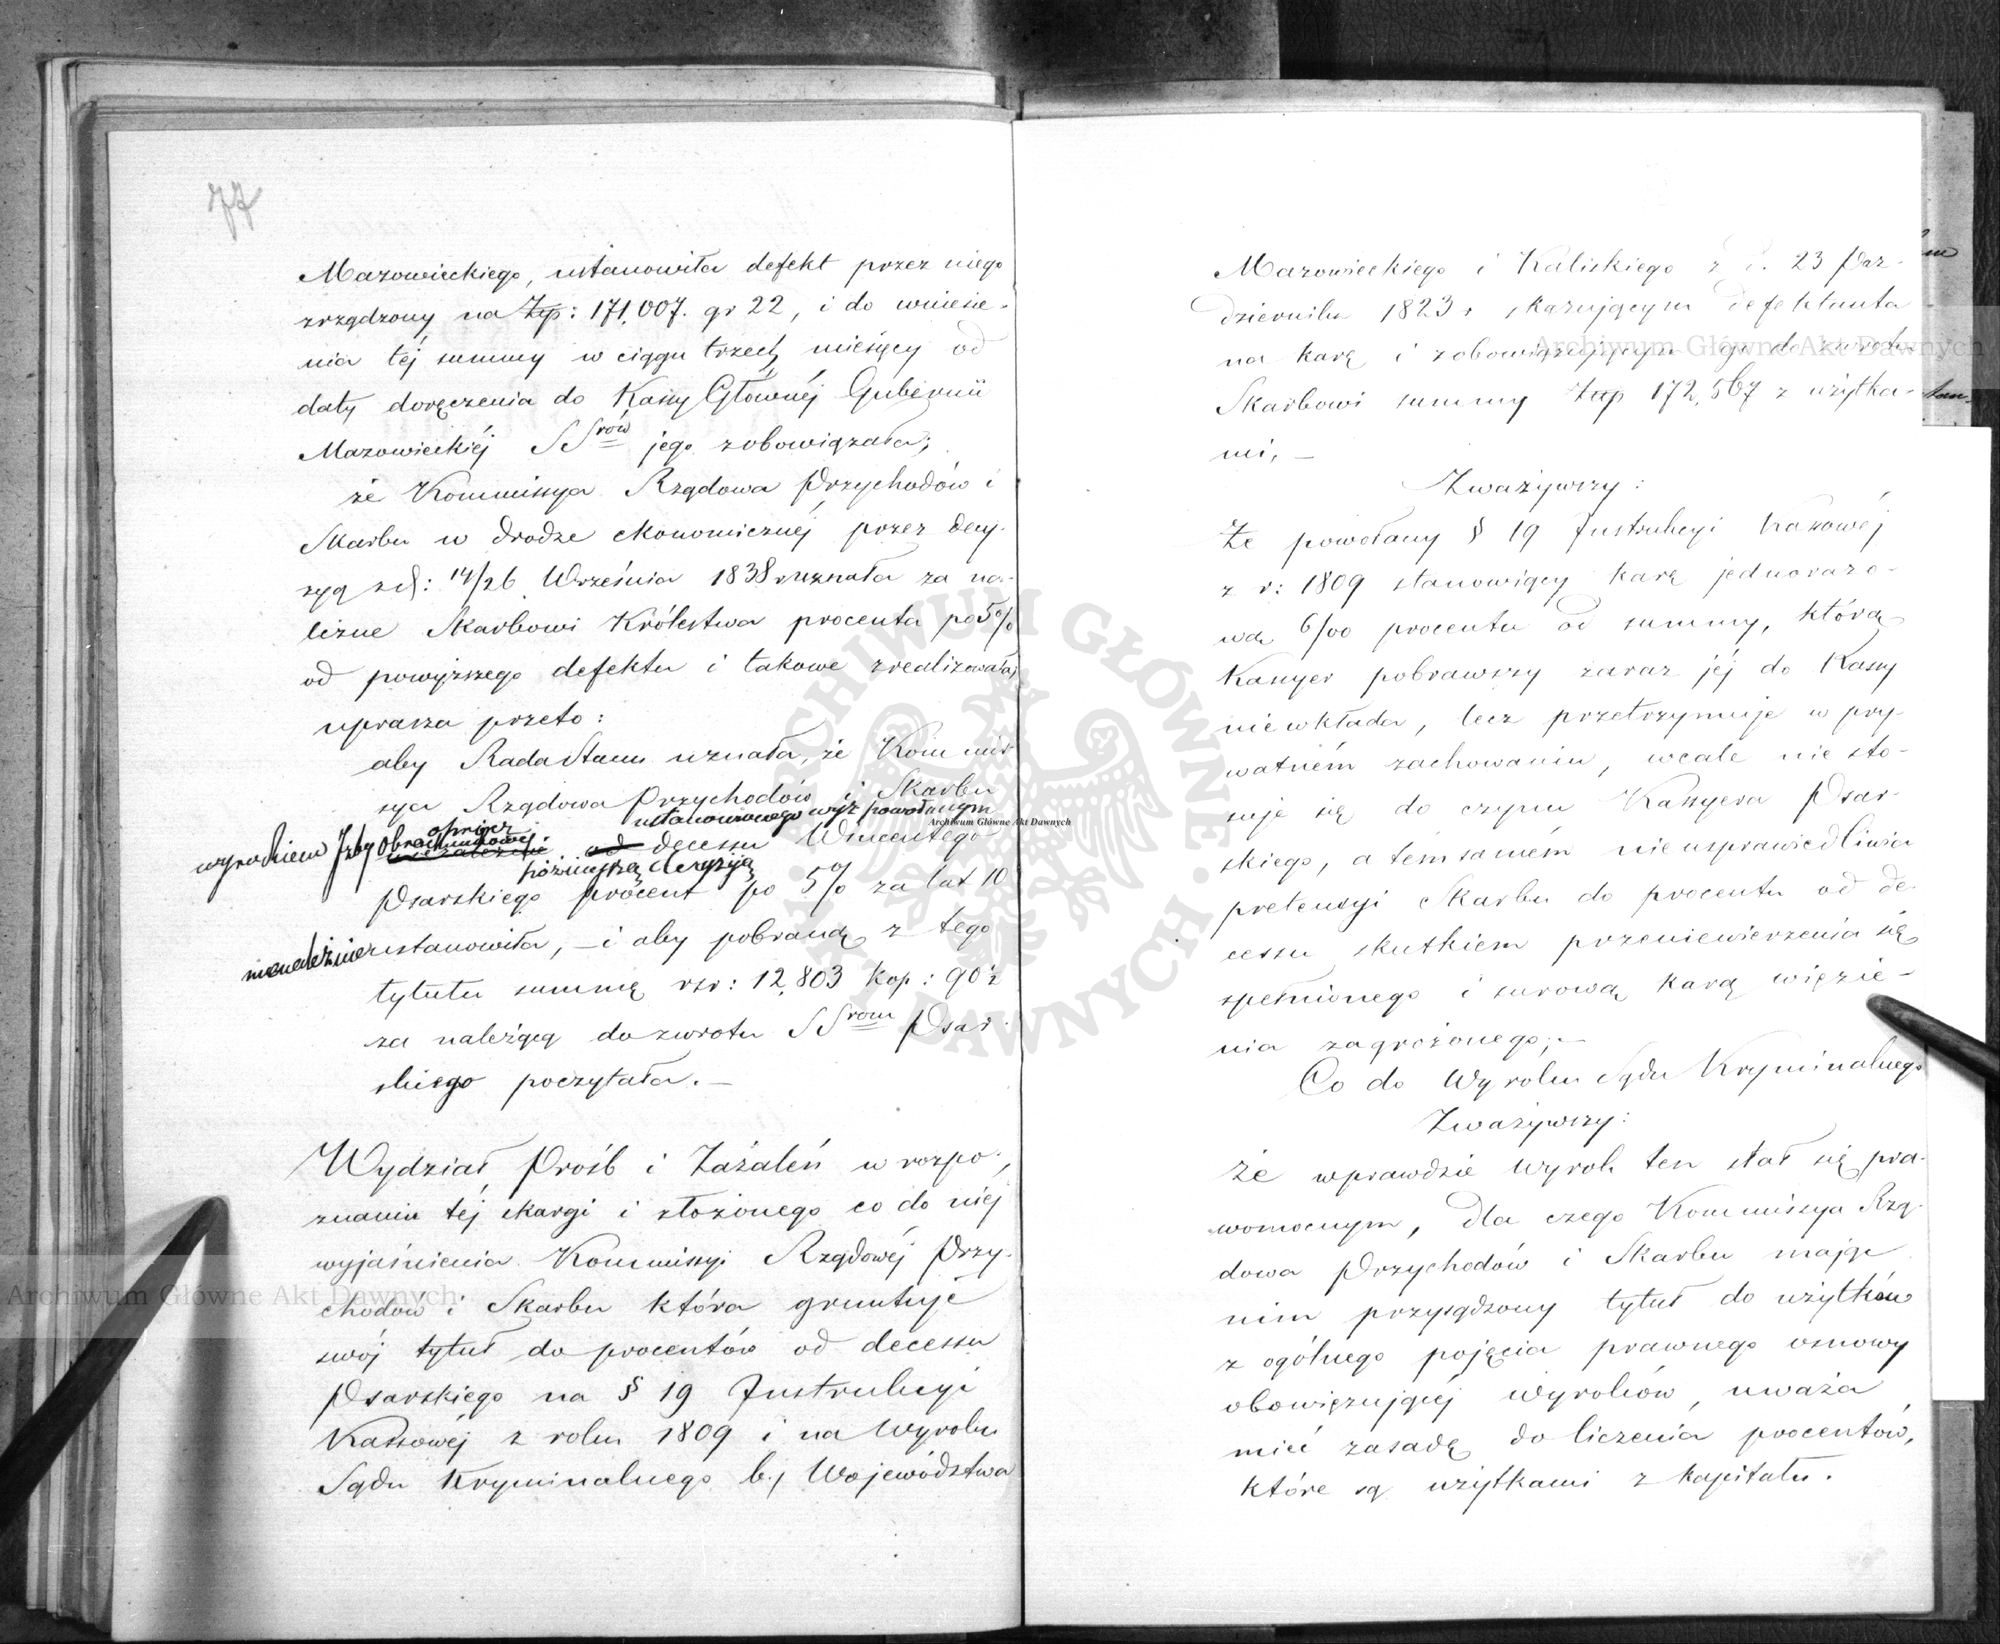 77
Mazowieckiego, ustanowiła defekt przez niego
zrządzony na Złp: 171,007. gr 22, i do wniesie-
nia téj summy w ciągu trzech miesięcy od
daty doręczenia do Kassy Głównéj Gubernii
Mazowieckiéj SSrów jego zobowiązała;
że Kommissya Rządowa Przychodów i
Skarbu w drodze ekonomicznéj przez decy-
zyą z d: 14/26 Września 1838 r uznała za na-
leżne Skarbowi Królestwa procenta po 5%
od powyższego defektu i takowe zrealizowała;
uprasza przeto:
aby Rada Stanu uznała, że Kommis-
sya Rządowa Przychodów i Skarbu
oprócz ustanowionego wyż powołanym
wyrokiem Izby Obrachunkowej
niezależnie od decessu Wincentego
późniejszą decyzyją
Psarskiego procent po 5% za lat 10
nienależnie ustanowiła, – i aby pobraną z tego
tytułu summę rsr: 12,803 kop: 90½
za należącą do zwrotu SSrom Psar-
skiego poczytała. –
Wydział Próśb i Zażaleń w rozpo-
znaniu téj skargi i złożonego co do niéj
wyjaśnienia Kommissyi Rządowéj Przy-
chodów i Skarbu która gruntuje
swój tytuł do procentów od decessu
Psarskiego na § 19 Instrukcyi
Kassowéj z roku 1809 i na Wyroku
Sądu Kryminalnego b. Województwa
Mazowieckiego i Kaliskiego z d. 23 Paz-
dziernika 1823 r skazującym defektanta
na karę i zobowiązującym go do zwrotu
Skarbowi summy Złp 172,567 z użytka-
mi, –
Zważywszy:
Że powołany § 19 Instrukcyi Kassowéj
z r: 1809 stanowiący karę jednorazo-
wą 6/00 procentu od summy, którą
Kassyer pobrawszy zaraz jéj do Kassy
niewkłada, lecz przetrzymuje w pry-
watném zachowaniu, wcale nie sto-
suje się do czynu Kassyera Psar-
skiego, a tém samém nieusprawiedliwia
pretensyi Skarbu do procentu od de-
cessu skutkiem przeniewierzenia się
spełnionego i surową karą więzie-
nia zagrożonego; –
Co do Wyroku Sądu Kryminalnego
Zważywszy:
że wprawdzie Wyrok ten stał się pra-
womocnym, dla czego Kommissya Rzą-
dowa Przychodów i Skarbu mając
nim przysądzony tytuł do użytków
z ogólnego pojęcia prawnego osnowy
obowięzującéj Wyroków, uważa
mieć zasadę do liczenia procentów,
które są użytkami z kapitału.
Archiwum Główne Akt Dawnych
Archiwum Główne Akt Dawnych
Archiwum Główne Akt Dawnych
ARCHIWUM GŁÓWNE AKT DAWNYCH